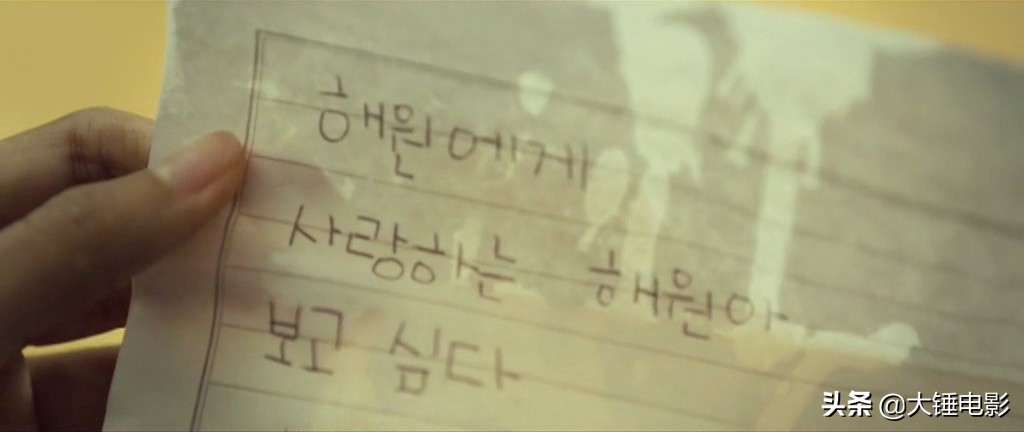 해원에게
사랑하는 해원아.
보고 심다
头条 @大锤电影